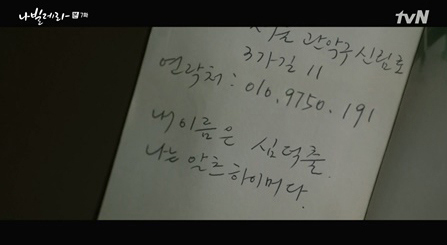 나빌레라 7화
tvN
서울 관악구 신림로
3가길 11
연락처 : 010. 9750. 191
내 이름은 심덕출.
나는 알츠하이머다.